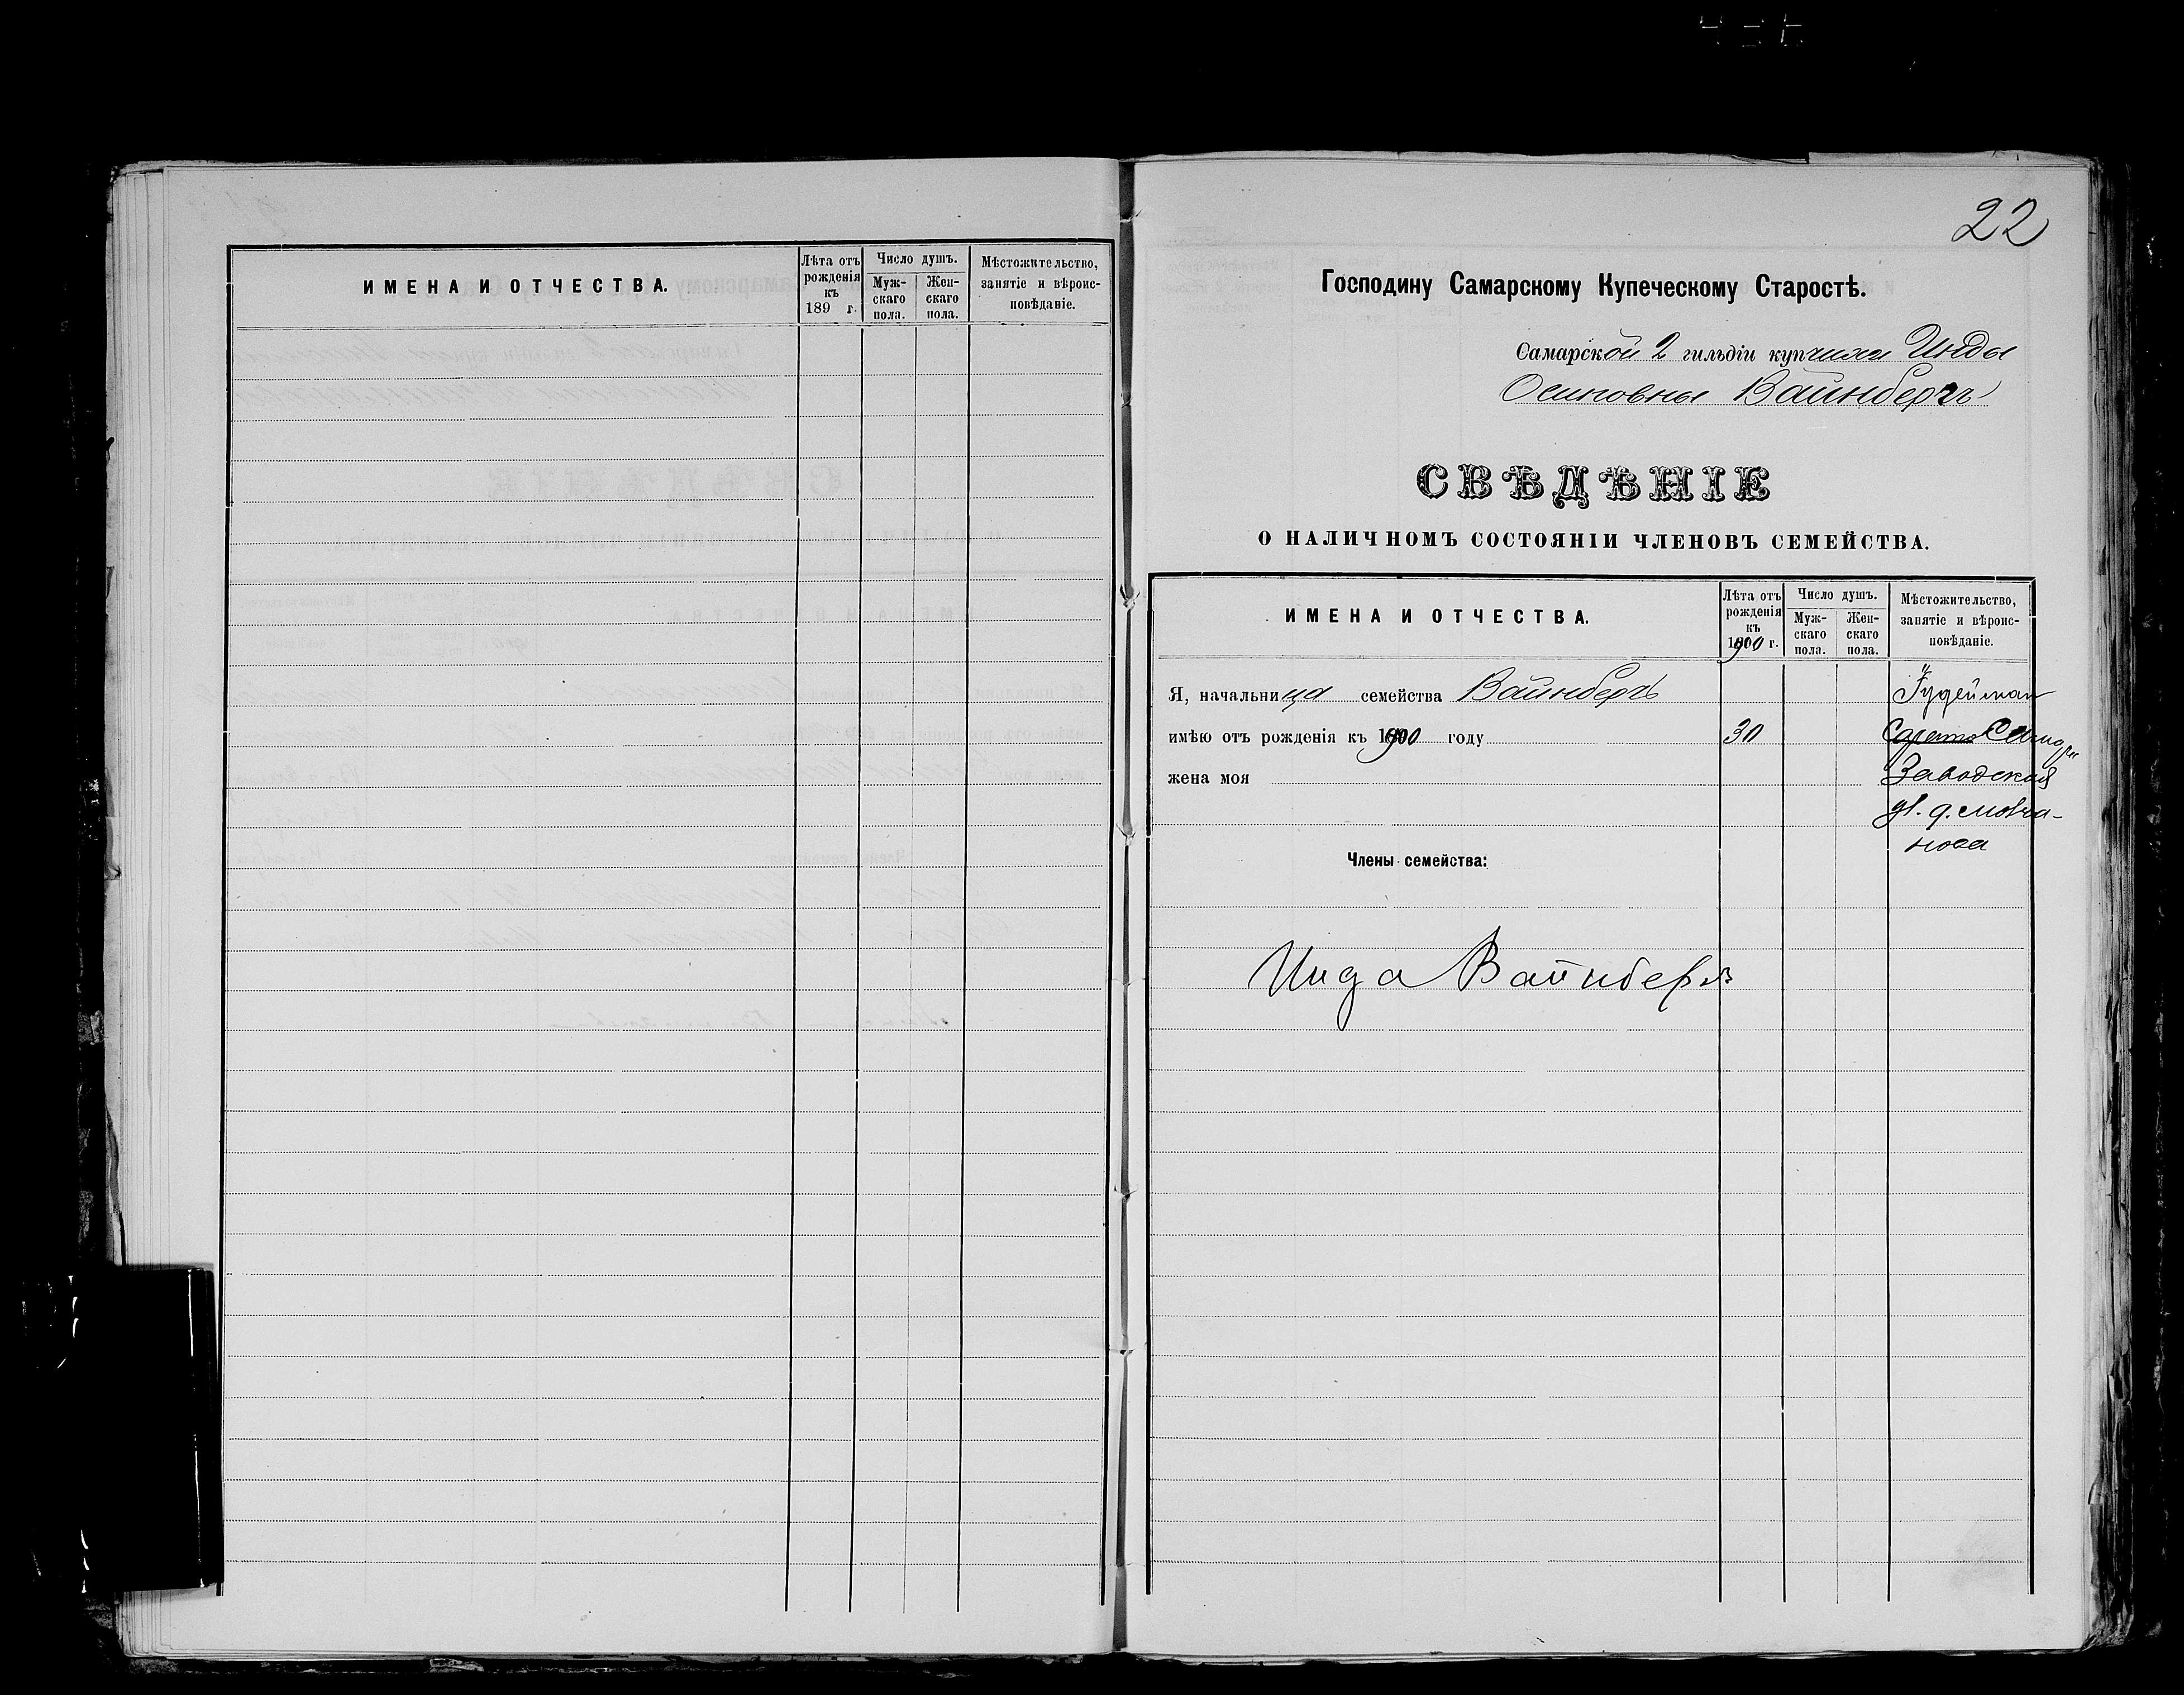 ИМЕНА И ОТЧЕСТВА.
Лѣта отъ рожденія къ 189 г.
Число душъ.
Мужскаго пола.
Женскаго пола.
Мѣстожительство, занятіе и вѣроисповѣданіе.
22
Господину Самарскому Купеческому Старостѣ.
Самарской 2 гильдіи купчихи Инды
Осиповны Вайнбергъ
СВѢДѢНІЕ
О НАЛИЧНОМЪ СОСТОЯНІИ ЧЛЕНОВЪ СЕМЕЙСТВА.
ИМЕНА И ОТЧЕСТВА.
Лѣта отъ рожденія къ 1900 г.
Число душъ.
Мужскаго пола.
Женскаго пола.
Мѣстожительство, занятіе и вѣроисповѣданіе.
Я, начальница семейства Вайнбергъ
имѣю отъ рожденія къ 1900 году 30
жена моя
Заводская
Члены семейства:
Инда Вайнбергъ